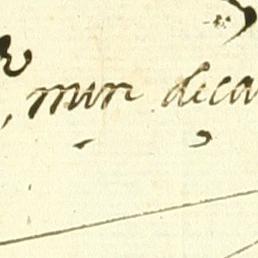 , min deca